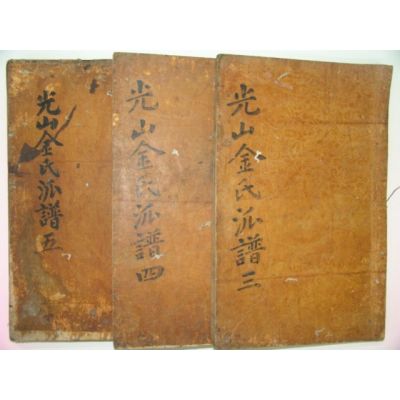 光山金氏派譜三
光山金氏派譜四
光山金氏派譜五